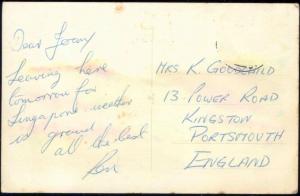 Dear Jenny
Leaving here
tomorrow for
Singapore weather
is grand
all the best
Ron
MRS K. GOODCHILD
13 POWER ROAD
KINGSTON
PORTSMOUTH
ENGLAND